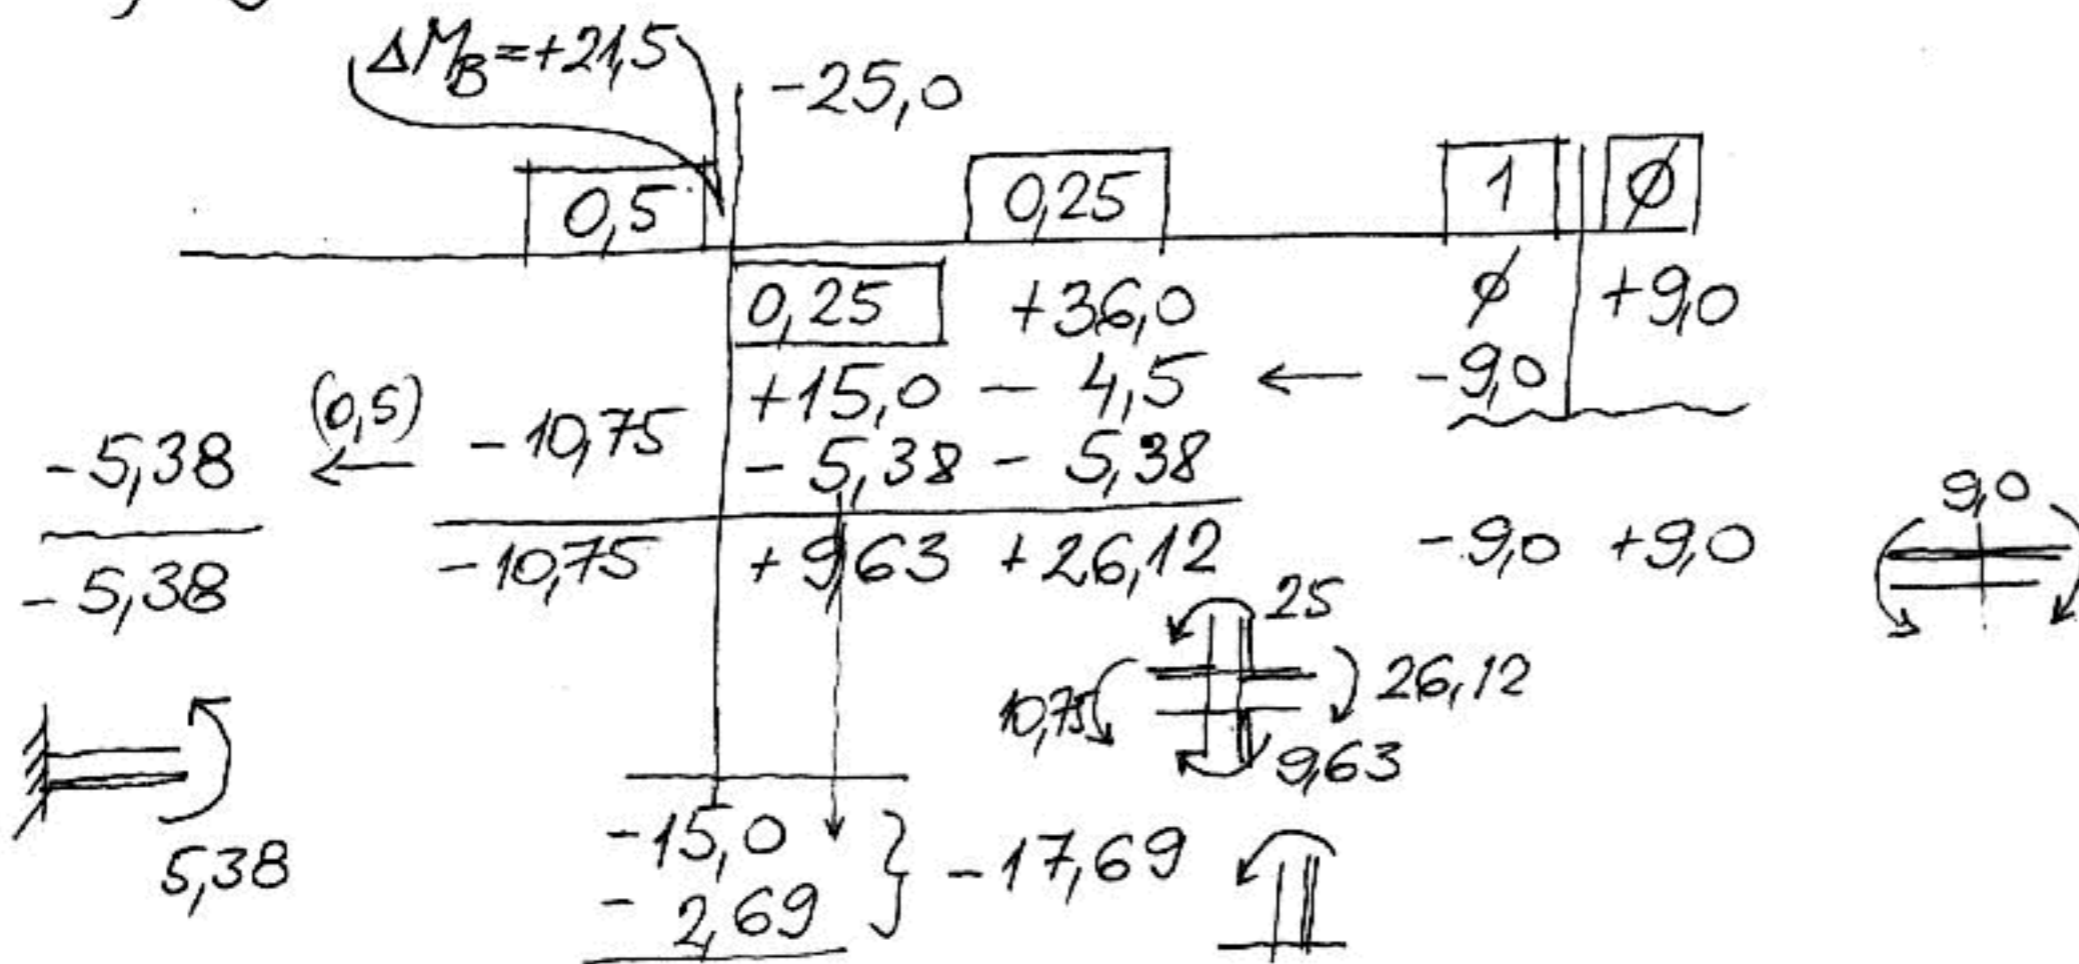 ΔM_B=+21,5
-25,0
0,5 0,25 1 ∅
0,25 +36,0 ∅ +9,0
+15,0 - 4,5 ← -9,0
-5,38 (0,5) ← -10,75 - 5,38 - 5,38
-5,38 -10,75 +9,63 +26,12 -9,0 +9,0
9,0
25
10,75 26,12
9,63
5,38
-15,0
- 2,69 } -17,69